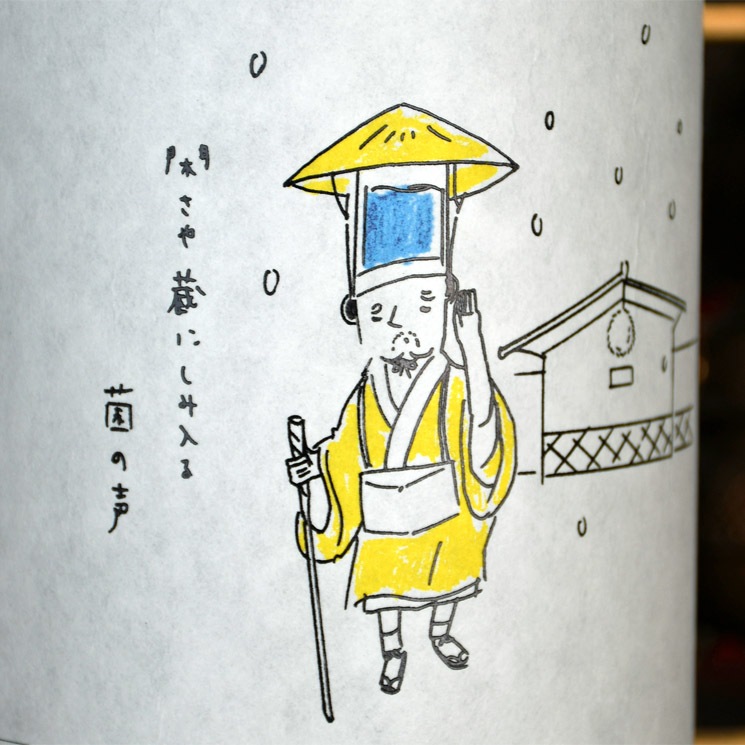 閑さや蔵にしみ入る
菌の声